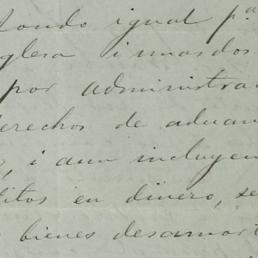 fondo igual pª
glesa i mas dos
por administra
derechos de aduan
, i aun incluyen
ditos en dinero, se
bienes desamort